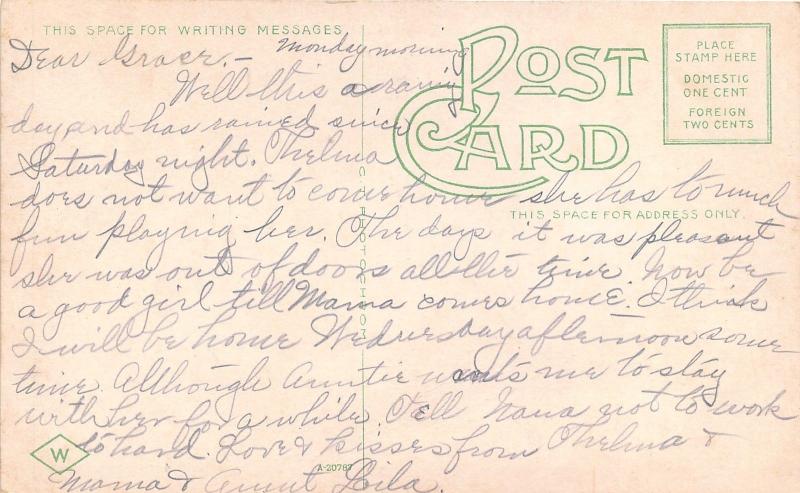 THIS SPACE FOR WRITING MESSAGES
POST CARD
PLACE
STAMP HERE
DOMESTIC
ONE CENT
FOREIGN
TWO CENTS
THIS SPACE FOR ADDRESS ONLY.
Dear Grace.- Monday morning
Well this a rainy
day and has rained since
Saturday night. Thelma
does not want to come home she has to much
fun playnig her. The days it was pleasant
she was out of doors all the time. Now be
a good girl till Mama comes home. I think
I will be home Wednesday afternoon some
time. Although Auntie wants me to stay
with her for a while. Tell Nana not to work
to hard. Love & kisses from Thelma &
Mama & Aunt Lila.
W
A-20787